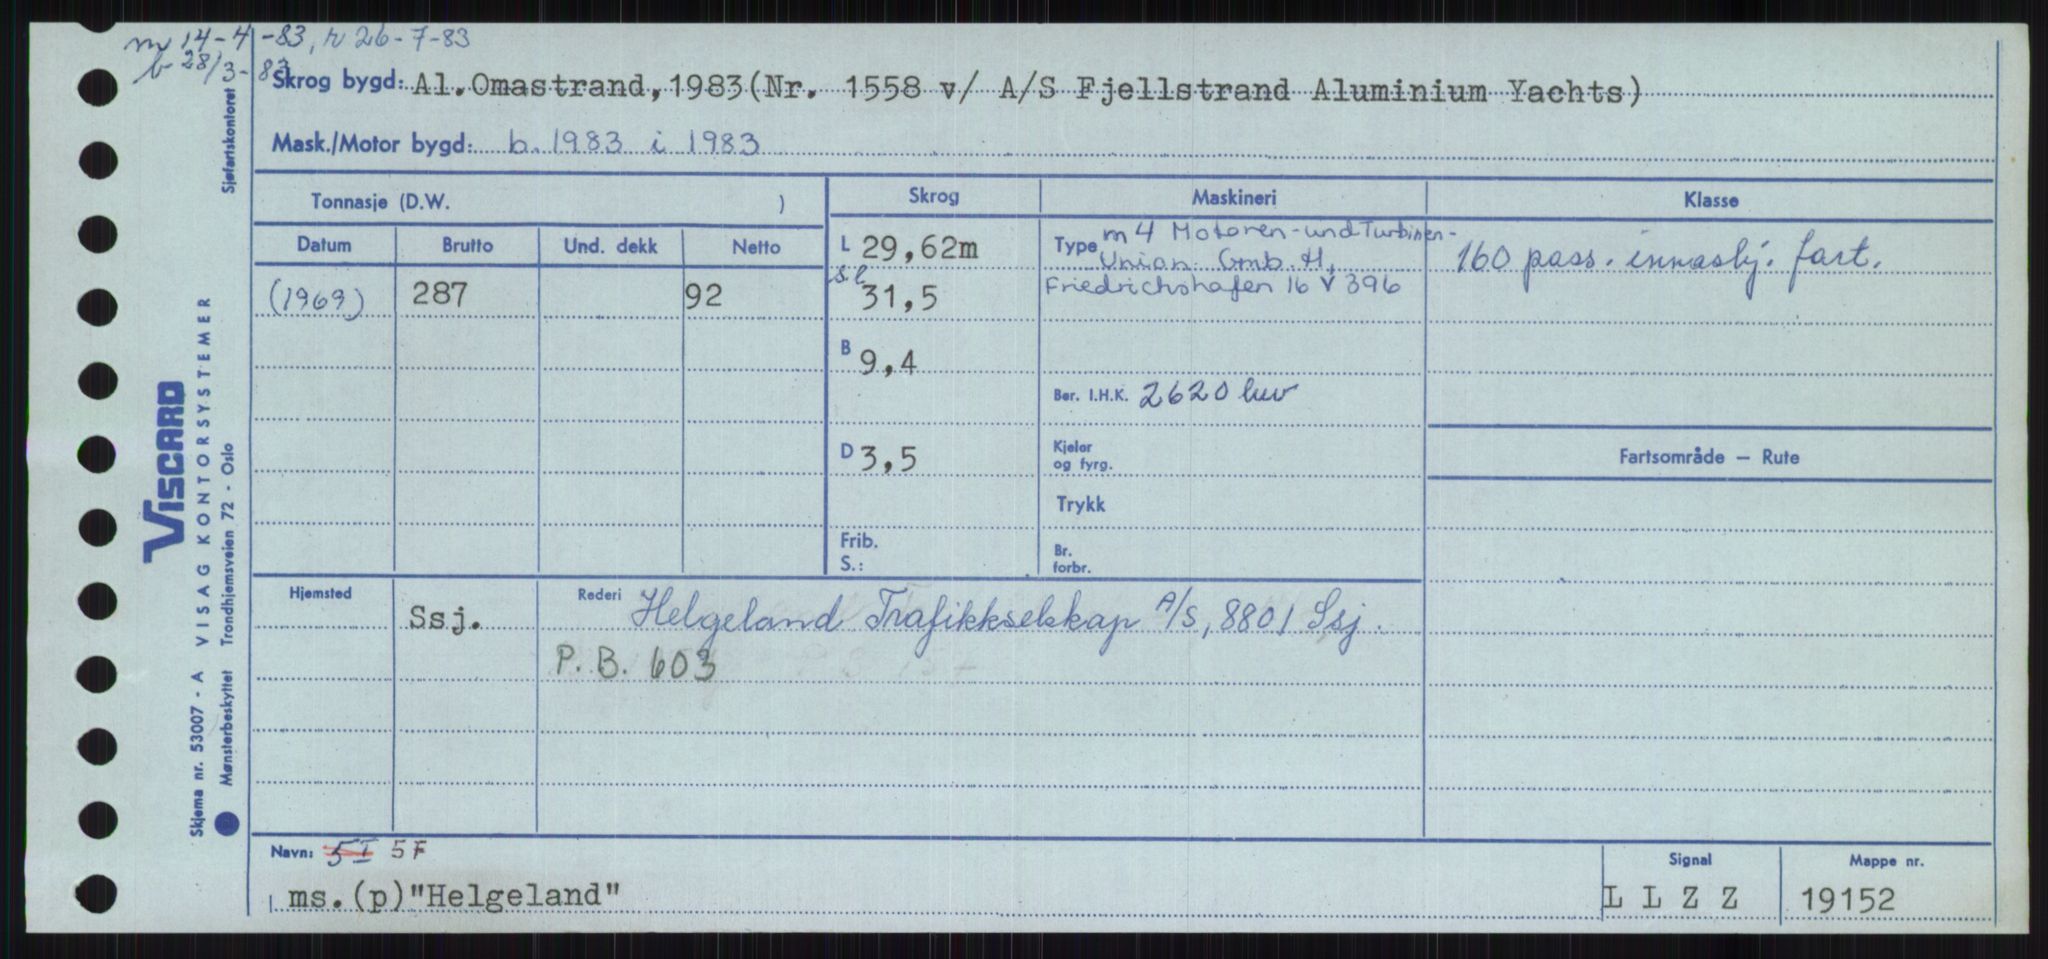 m 14-4-83, r 26-7-83
b 28/3-83
Skrog bygd: Al.Omastrand,1983(Nr. 1558 v/ A/S Fjellstrand Aluminium Yachts)
Mask./Motor bygd: b. 1983 i 1983
Tonnasje (D.W. )
Skrog
Maskineri
Klasse
Datum Brutto Und. dekk Netto
(1969) 287 92
L 29,62m
s.l. 31,5
B 9,4
D 3,5
Frib.
S.:
Type m 4 Motoren-und Turbinen-
Union Gmb.H,
Friedrichshafen 16 V 396
Ber. I.H.K. 2620 kw
Kjeler
og fyrg.
Trykk
Br.
forbr.
160 pass. innaskj. fart.
Fartsområde — Rute
Hjemsted Ssj.
Rederi Helgeland Trafikkselskap A/S, 8801 Ssj.
P.B. 603
Navn: 5I 5F
ms.(p)"Helgeland"
Signal
L L Z Z
Mappe nr.
19152
Sjøfartskontoret
VISCARD
Skjema nr. 53007 - A VISAG KONTORSYSTEMER
Mønsterbeskyttet Trondhjemsveien 72 - Oslo